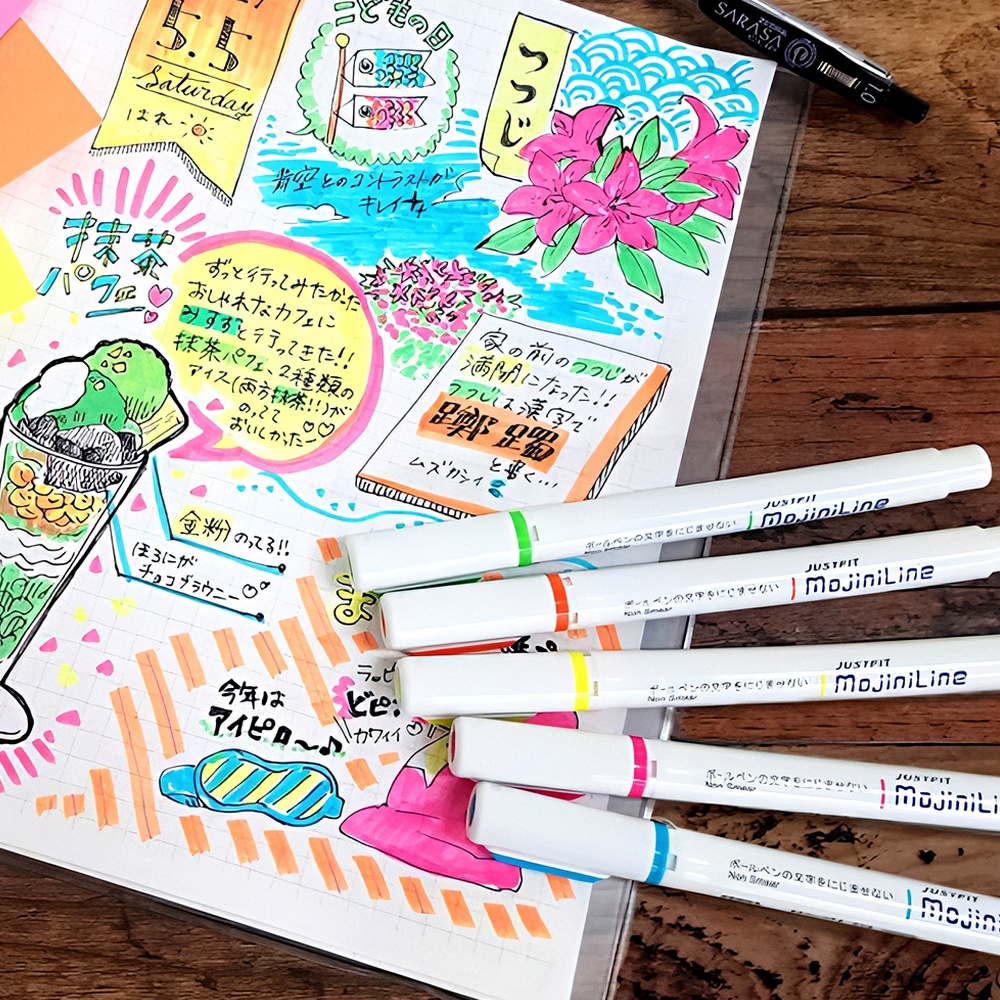 5.5
Saturday
はれ
こどもの日
つつじ
青空とのコントラストが
キレイ
抹茶
パフェ
ずっと行ってみたかった
おしゃれなカフェに
みすずと行ってきた!!
抹茶パフェ、2種類の
アイス(両方抹茶!!)が
のってて
おいしかったー♡♡
家の前のつつじが
満開になった!!
つつじは漢字で
躑躅
と書く…
ムズカシイ
金粉のってる!!
ほろにが
チョコブラウニー♡
今年は
アイピロ〜♪
カワイイ♡
SARASA
1.0
JUSTFIT
MojiniLine
ボールペンの文字をにじませない
JUSTFIT
MojiniLine
ボールペンの文字をにじませない
JUSTFIT
MojiniLine
ボールペンの文字をにじませない
JUSTFIT
MojiniLi
ボールペンの文字をにじませない
JUSTFIT
Mojin
ボールペンの文字をにじませない